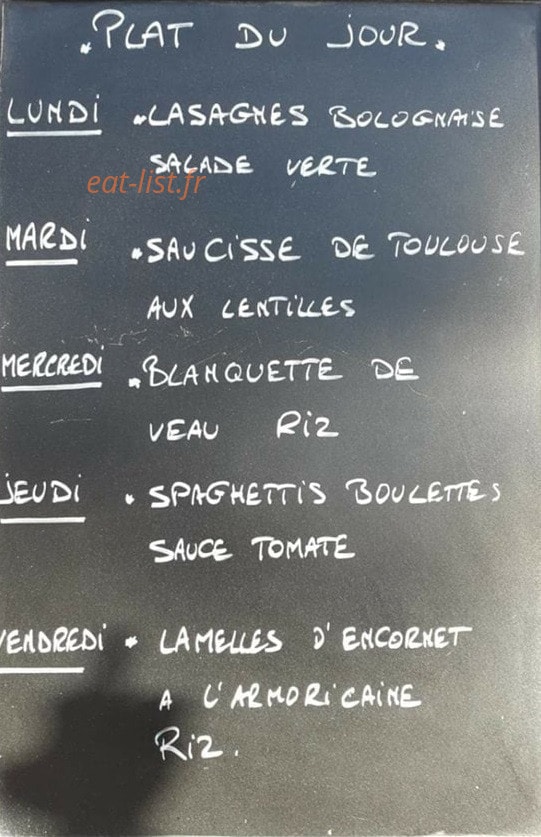 PLAT DU JOUR.
LUNDI LASAGNES BOLOGNAISE
SALADE VERTE
eat-list.fr
MARDI SAUCISSE DE TOULOUSE
AUX LENTILLES
MERCREDI BLANQUETTE DE
VEAU RIZ
JEUDI SPAGHETTIS BOULETTES
SAUCE TOMATE
VENDREDI LAMELLES D'ENCORNET
A L'ARMORICAINE
RIZ.